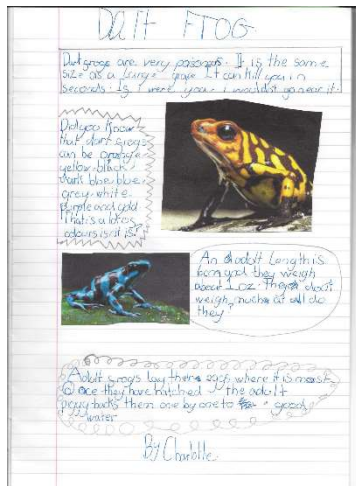 Dart FroG
Dart frogs are very poisonous. It is the same
size as a large grape. It can kill you in
seconds. If I were you I wouldnt go near it.
Did you know
that dart frogs
can be orange
yellow-black
dark blue, blue,
grey-white
purple and gold
That's a lot of
colours isn't it?
An adult Length is
they weigh
about 1 oz. They don't
weigh much at all do
they?
Adult frogs lay there eggs where it is moist
Once they have hatched the adult
piggy backs them one by one to good
water
By Charlotte